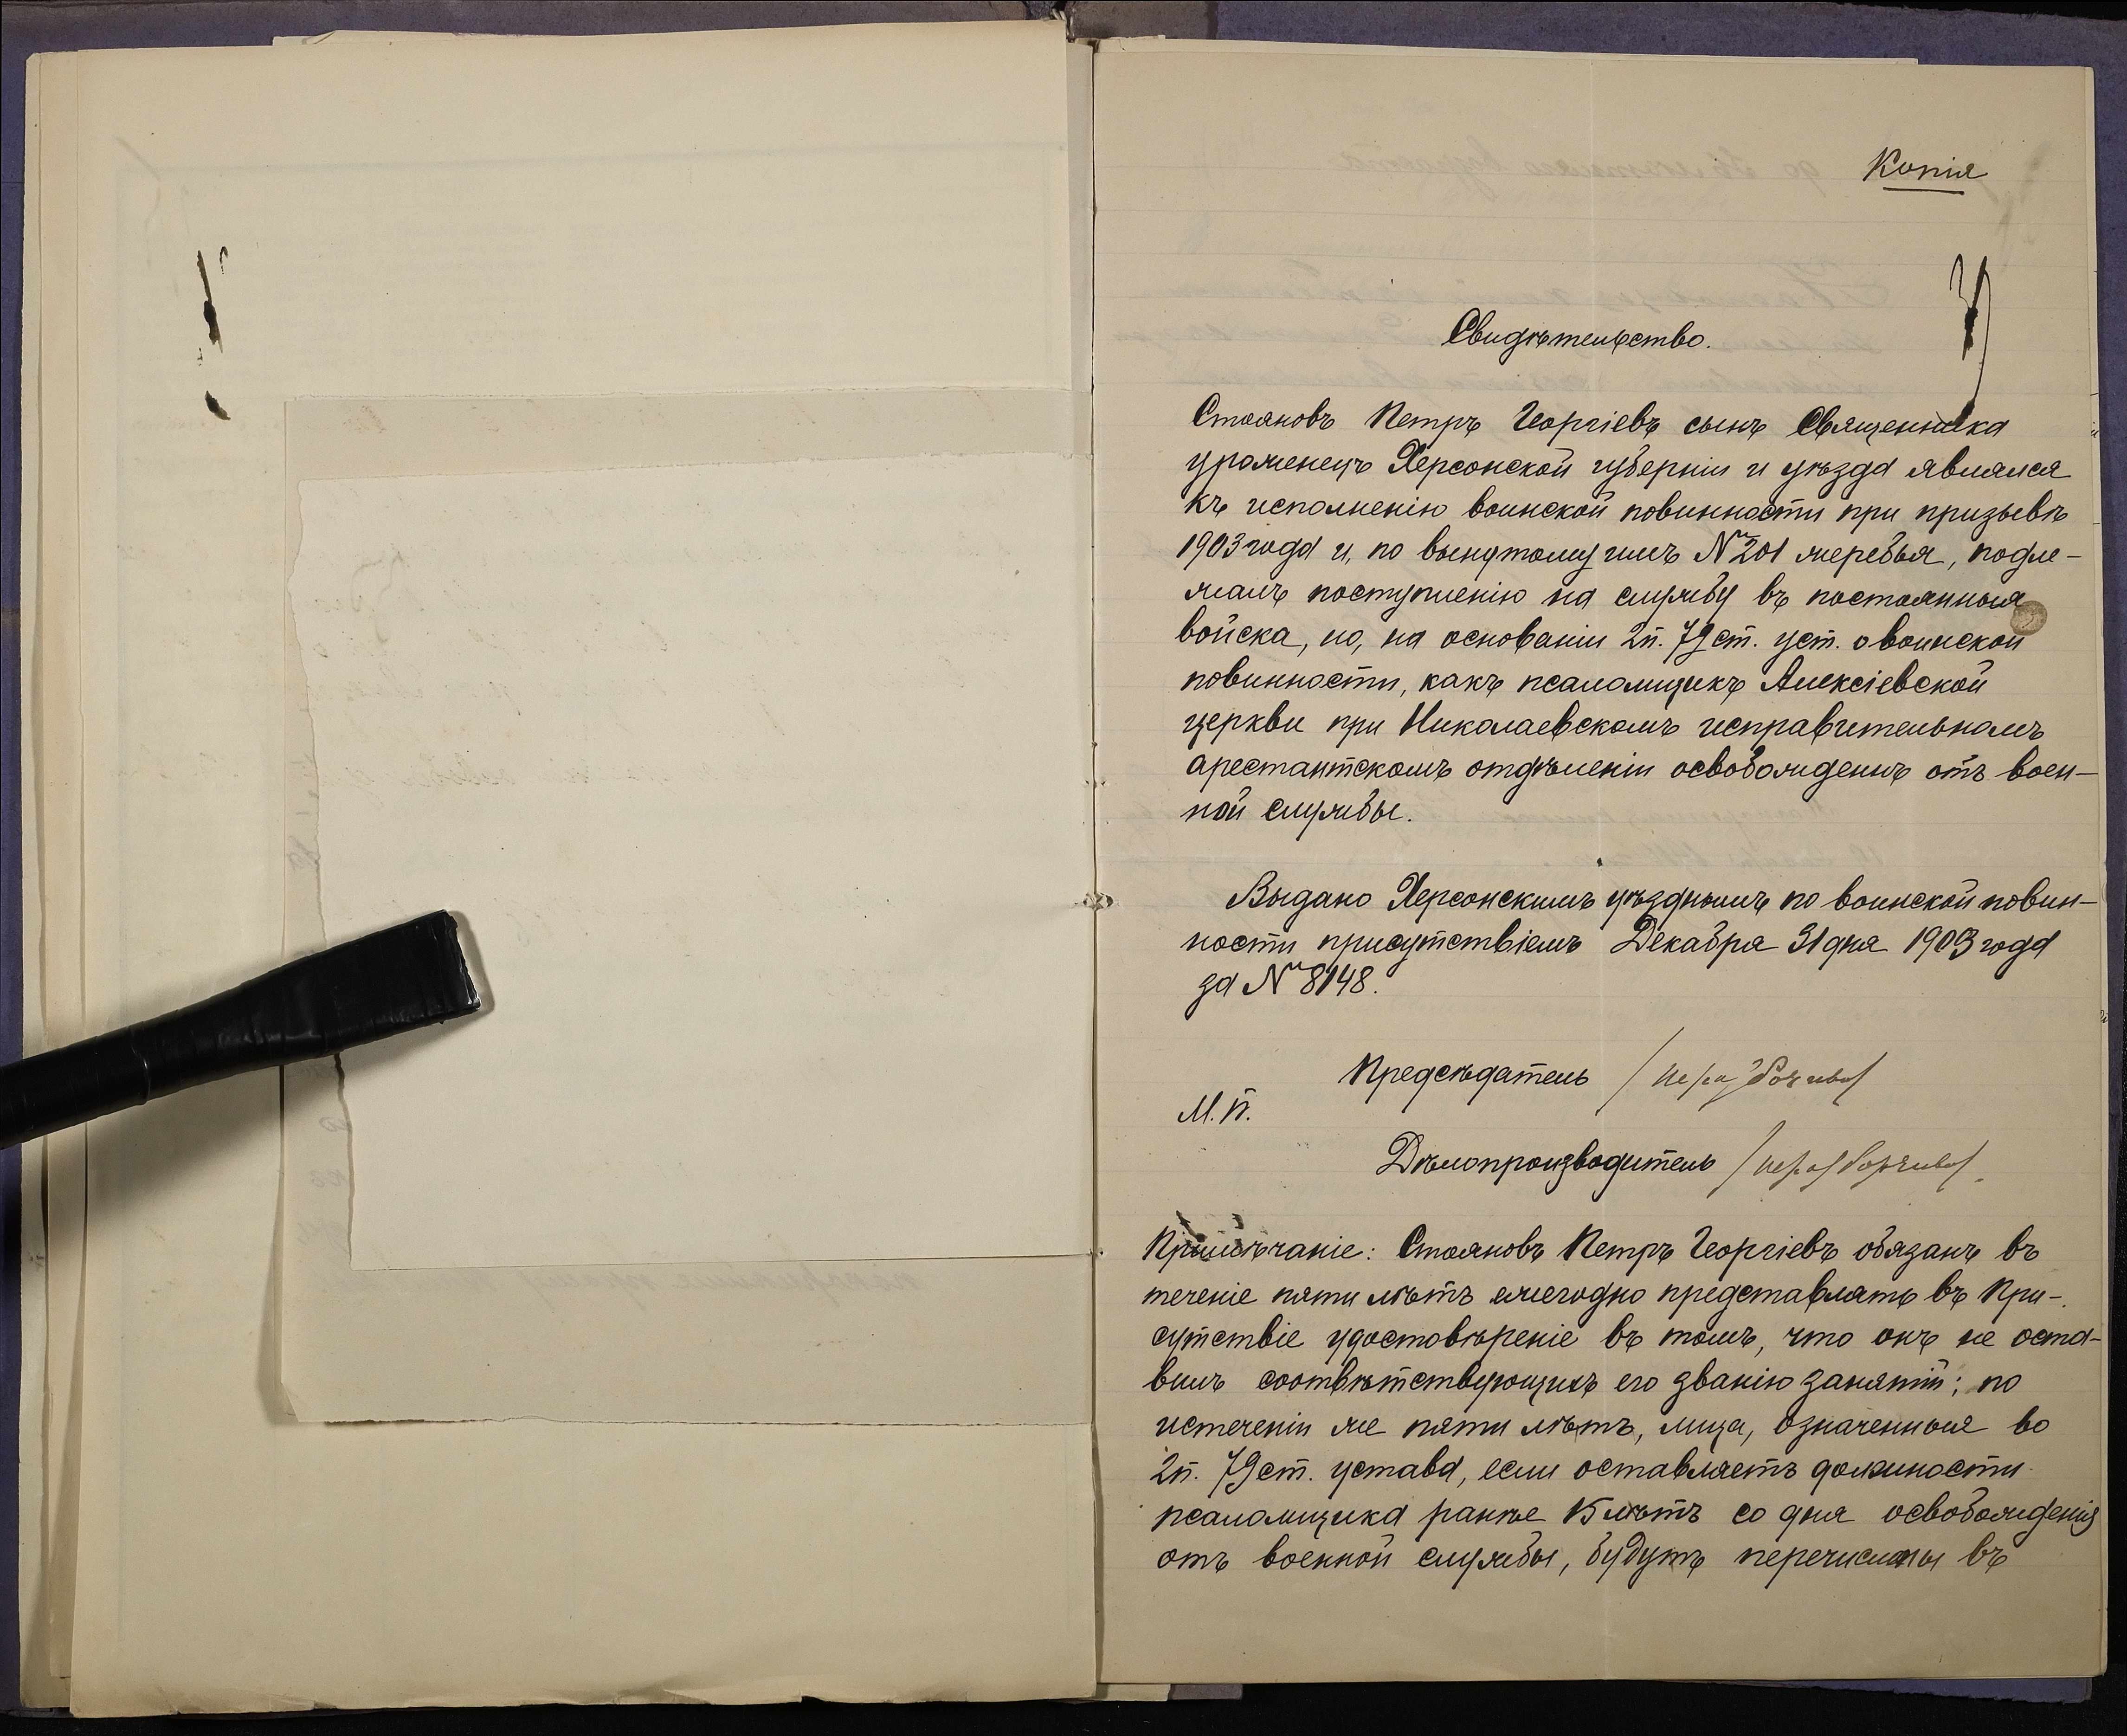 Копія
Свидѣтельство.
Стояновъ Петръ Георгіевъ сынъ Священника
уроженецъ Херсонской губерніи и уѣзда являлся
къ исполненію воинской повинности при призывѣ
1903 года и, по вынутому имъ № 201 жеребья, подле-
жалъ поступленію на службу въ постоянныя
войска, но, на основаніи 2п. 79 ст. уст. о воинской
повинности, какъ псаломщикъ Алексіевской
церкви при Николаевскомъ исправительномъ
арестантскомъ отдѣленіи освобожденъ отъ воен-
ной службы.
Выдано Херсонскимъ уѣзднымъ по воинской повин-
ности присутствіемъ Декабря 31 дня 1903 года
за № 8148.
Предсѣдатель /неразборчиво/
М.П.
Дѣлопроизводитель /неразборчиво/.
Примѣчаніе: Стояновъ Петръ Георгіевъ обязанъ въ
теченіе пяти лѣтъ ежегодно представлять въ При-
сутствіе удостовѣреніе въ томъ, что онъ не оста-
вилъ соотвѣтствующихъ его званію занятій; по
истеченіи же пяти лѣтъ, лица, означенныя во
2п. 79 ст. устава, если оставляетъ должности
псаломщика ранѣе 15 лѣтъ со дня освобожденія
отъ военной службы, будутъ перечислены въ